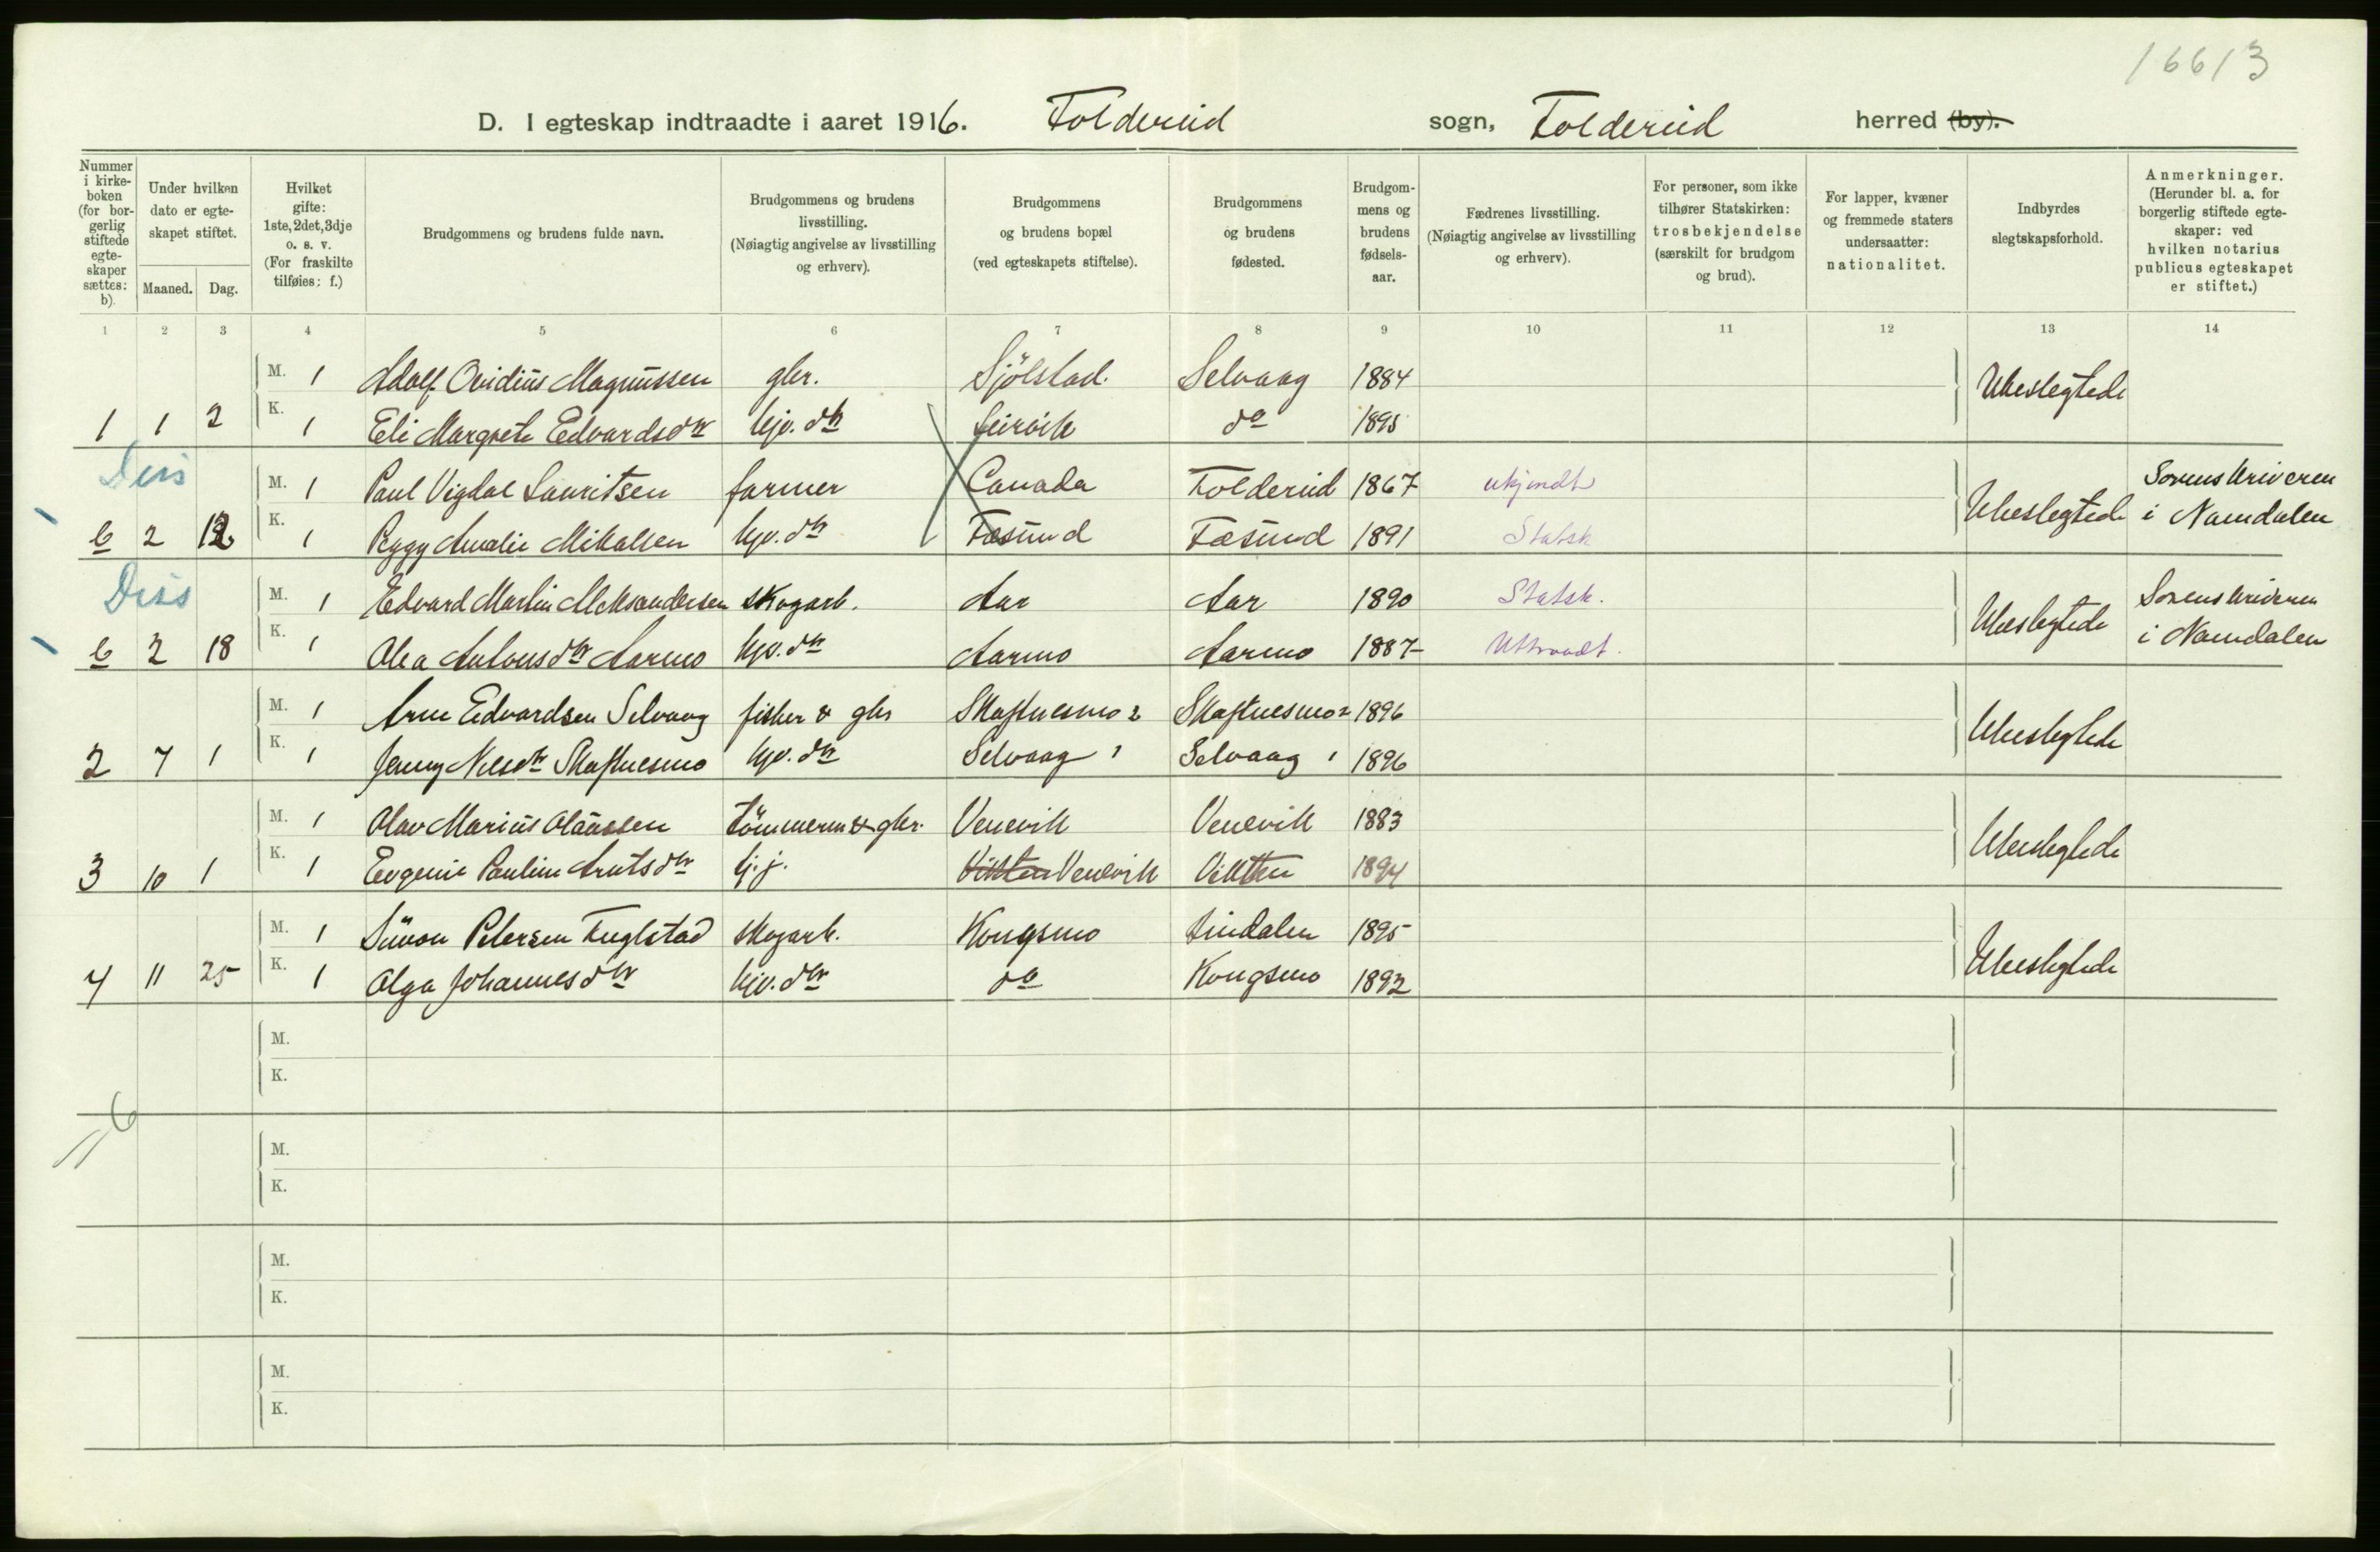 16613
D. I egteskap indtraadte i aaret 1916. Foldereid sogn, Foldereid herred (by).
Nummer i kirke-boken (for bor-gerlig stiftede egte-skaper sættes: b).
Under hvilken dato er egte-skapet stiftet.
Maaned. Dag.
Hvilket gifte: 1ste, 2det, 3dje o. s. v. (For fraskilte tilføies: f.)
Brudgommens og brudens fulde navn.
Brudgommens og brudens livsstilling. (Nøiagtig angivelse av livsstilling og erhverv).
Brudgommens og brudens bopæl (ved egteskapets stiftelse).
Brudgommens og brudens fødested.
Brudgom-mens og brudens fødsels-aar.
Fædrenes livsstilling. (Nøiagtig angivelse av livsstilling og erhverv).
For personer, som ikke tilhører Statskirken: trosbekjendelse (særskilt for brudgom og brud).
For lapper, kvæner og fremmede staters undersaatter: nationalitet.
Indbyrdes slegtskapsforhold.
Anmerkninger. (Herunder bl. a. for borgerlig stiftede egte-skaper: ved hvilken notarius publicus egteskapet er stiftet.)
1 2 3 4 5 6 7 8 9 10 11 12 13 14
M. 1 Adolf Ovidius Magnussen gbr. Sjölstad. Selvaag 1884 Ubeslegtede
1 1 2 K. 1 Eli Margrete Edvardsdtr kjv. dtr Leirvik do 1895
Diss
M. 1 Paul Vigdal Lauritsen farmer Canada Foldereid 1867 ukjendt Ubeslegtede Sorenskriveren
b 2 12 K. 1 Peggy Amalie Mikalsen kjv. dtr Fæsund Fæsund 1891 Statsk i Namdalen
Diss
M. 1 Edvard Martin Aleksandersen skogarb. Aar Aar 1890 Statsk. Ubeslegtede Sorenskriveren
b 2 18 K. 1 Olea Antonsdtr Aarmo kjv. dtr Aarmo Aarmo 1887 Uttraadt. i Namdalen
M. 1 Arne Edvardsen Selvaag fisker & gbr Skaftnesmo 2 Skaftnesmo 2 1896 Ubeslegtede
2 7 1 K. 1 Jenny Nilsdtr Skaftnesmo kjv. dtr Selvaag 1 Selvaag 1 1896
M. 1 Olav Marius Olaussen tömmerm & gbr. Venevik Venevik 1883 Ubeslegtede
3 10 1 K. 1 Evgenie Pauline Arntsdtr tj. j. Vikten Venevik Vikten 1894
M. 1 Simon Petersen Fuglstad skogarb. Kongsmo Lindalen 1895 Ubeslegtede
4 11 25 K. 1 Olga Johannesdtr kjv. dtr do Kongsmo 1892
M.
K.
6
M.
K.
M.
K.
M.
K.